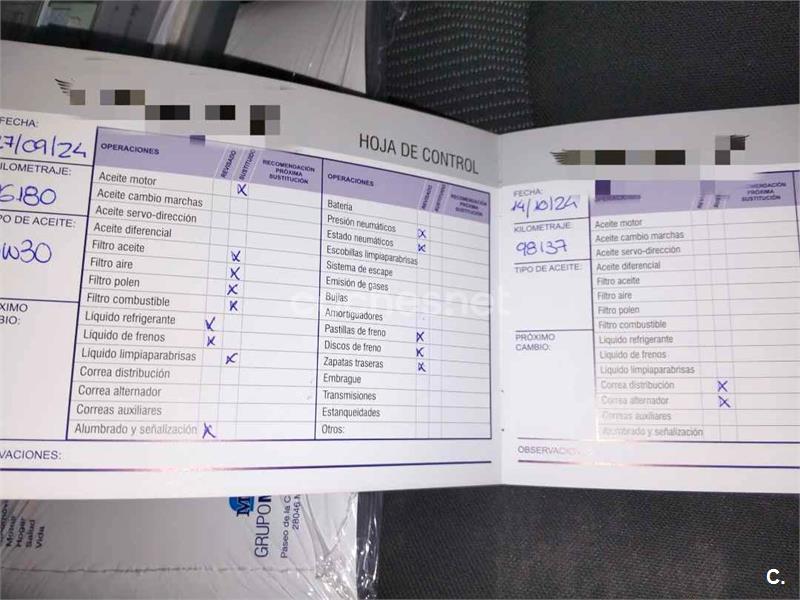 HOJA DE CONTROL
FECHA:
27/09/24
KILOMETRAJE:
6180
TIPO DE ACEITE:
W30
OPERACIONES
REVISADO
SUSTITUIDO
RECOMENDACIÓN PRÓXIMA SUSTITUCIÓN
Aceite motor
Aceite cambio marchas
Aceite servo-dirección
Aceite diferencial
Filtro aceite
Filtro aire
Filtro polen
Filtro combustible
Líquido refrigerante
Líquido de frenos
Líquido limpiaparabrisas
Correa distribución
Correa alternador
Correas auxiliares
Alumbrado y señalización
OPERACIONES
REVISADO
SUSTITUIDO
RECOMENDACIÓN PRÓXIMA SUSTITUCIÓN
Batería
Presión neumáticos
Estado neumáticos
Escobillas limpiaparabrisas
Sistema de escape
Emisión de gases
Bujías
Amortiguadores
Pastillas de freno
Discos de freno
Zapatas traseras
Embrague
Transmisiones
Estanqueidades
Otros:
VACIONES:
FECHA:
14/10/24
KILOMETRAJE
98137
TIPO DE ACEITE:
PRÓXIMO
CAMBIO:
OPERACIONES
Aceite motor
Aceite cambio marchas
Aceite servo-dirección
Aceite diferencial
Filtro aceite
Filtro aire
Filtro polen
Filtro combustible
Líquido refrigerante
Líquido de frenos
Líquido limpiaparabrisas
Correa distribución
Correa alternador
Correas auxiliares
Alumbrado y señalización
OBSERVACION
coches.net
Hogar
Salud
Vida
GRUPO
Paseo de la C
28046
C.